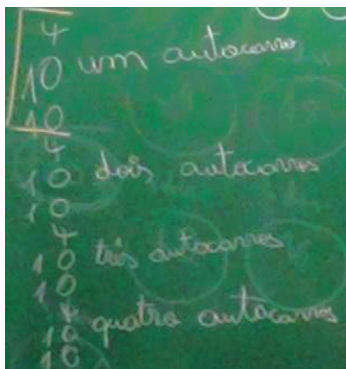 4
10 um autocarro
10
4
10 dois autocarros
10
4
10 três autocarros
10
4
10 quatro autocarros
10